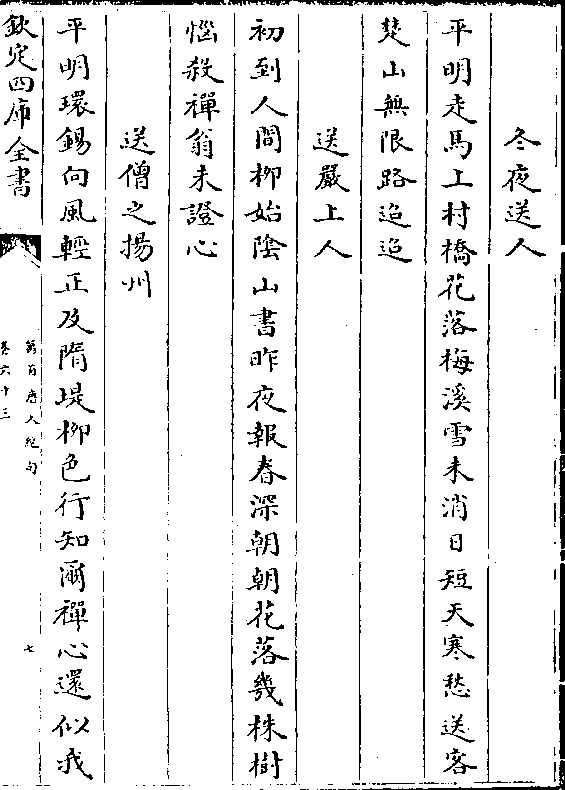 冬夜送人
平明走馬上村橋花落梅溪雪未消日短天寒愁送客
楚山無限路迢迢
送嚴上人
初到人間柳始陰山書昨夜報春深朝朝花落幾株樹
惱殺禪翁未證心
送僧之揚州
平明環錫向風輕正及隋堤柳色行知爾禪心還似我
欽定四庫全書
萬首唐人絶句
卷六十三
七